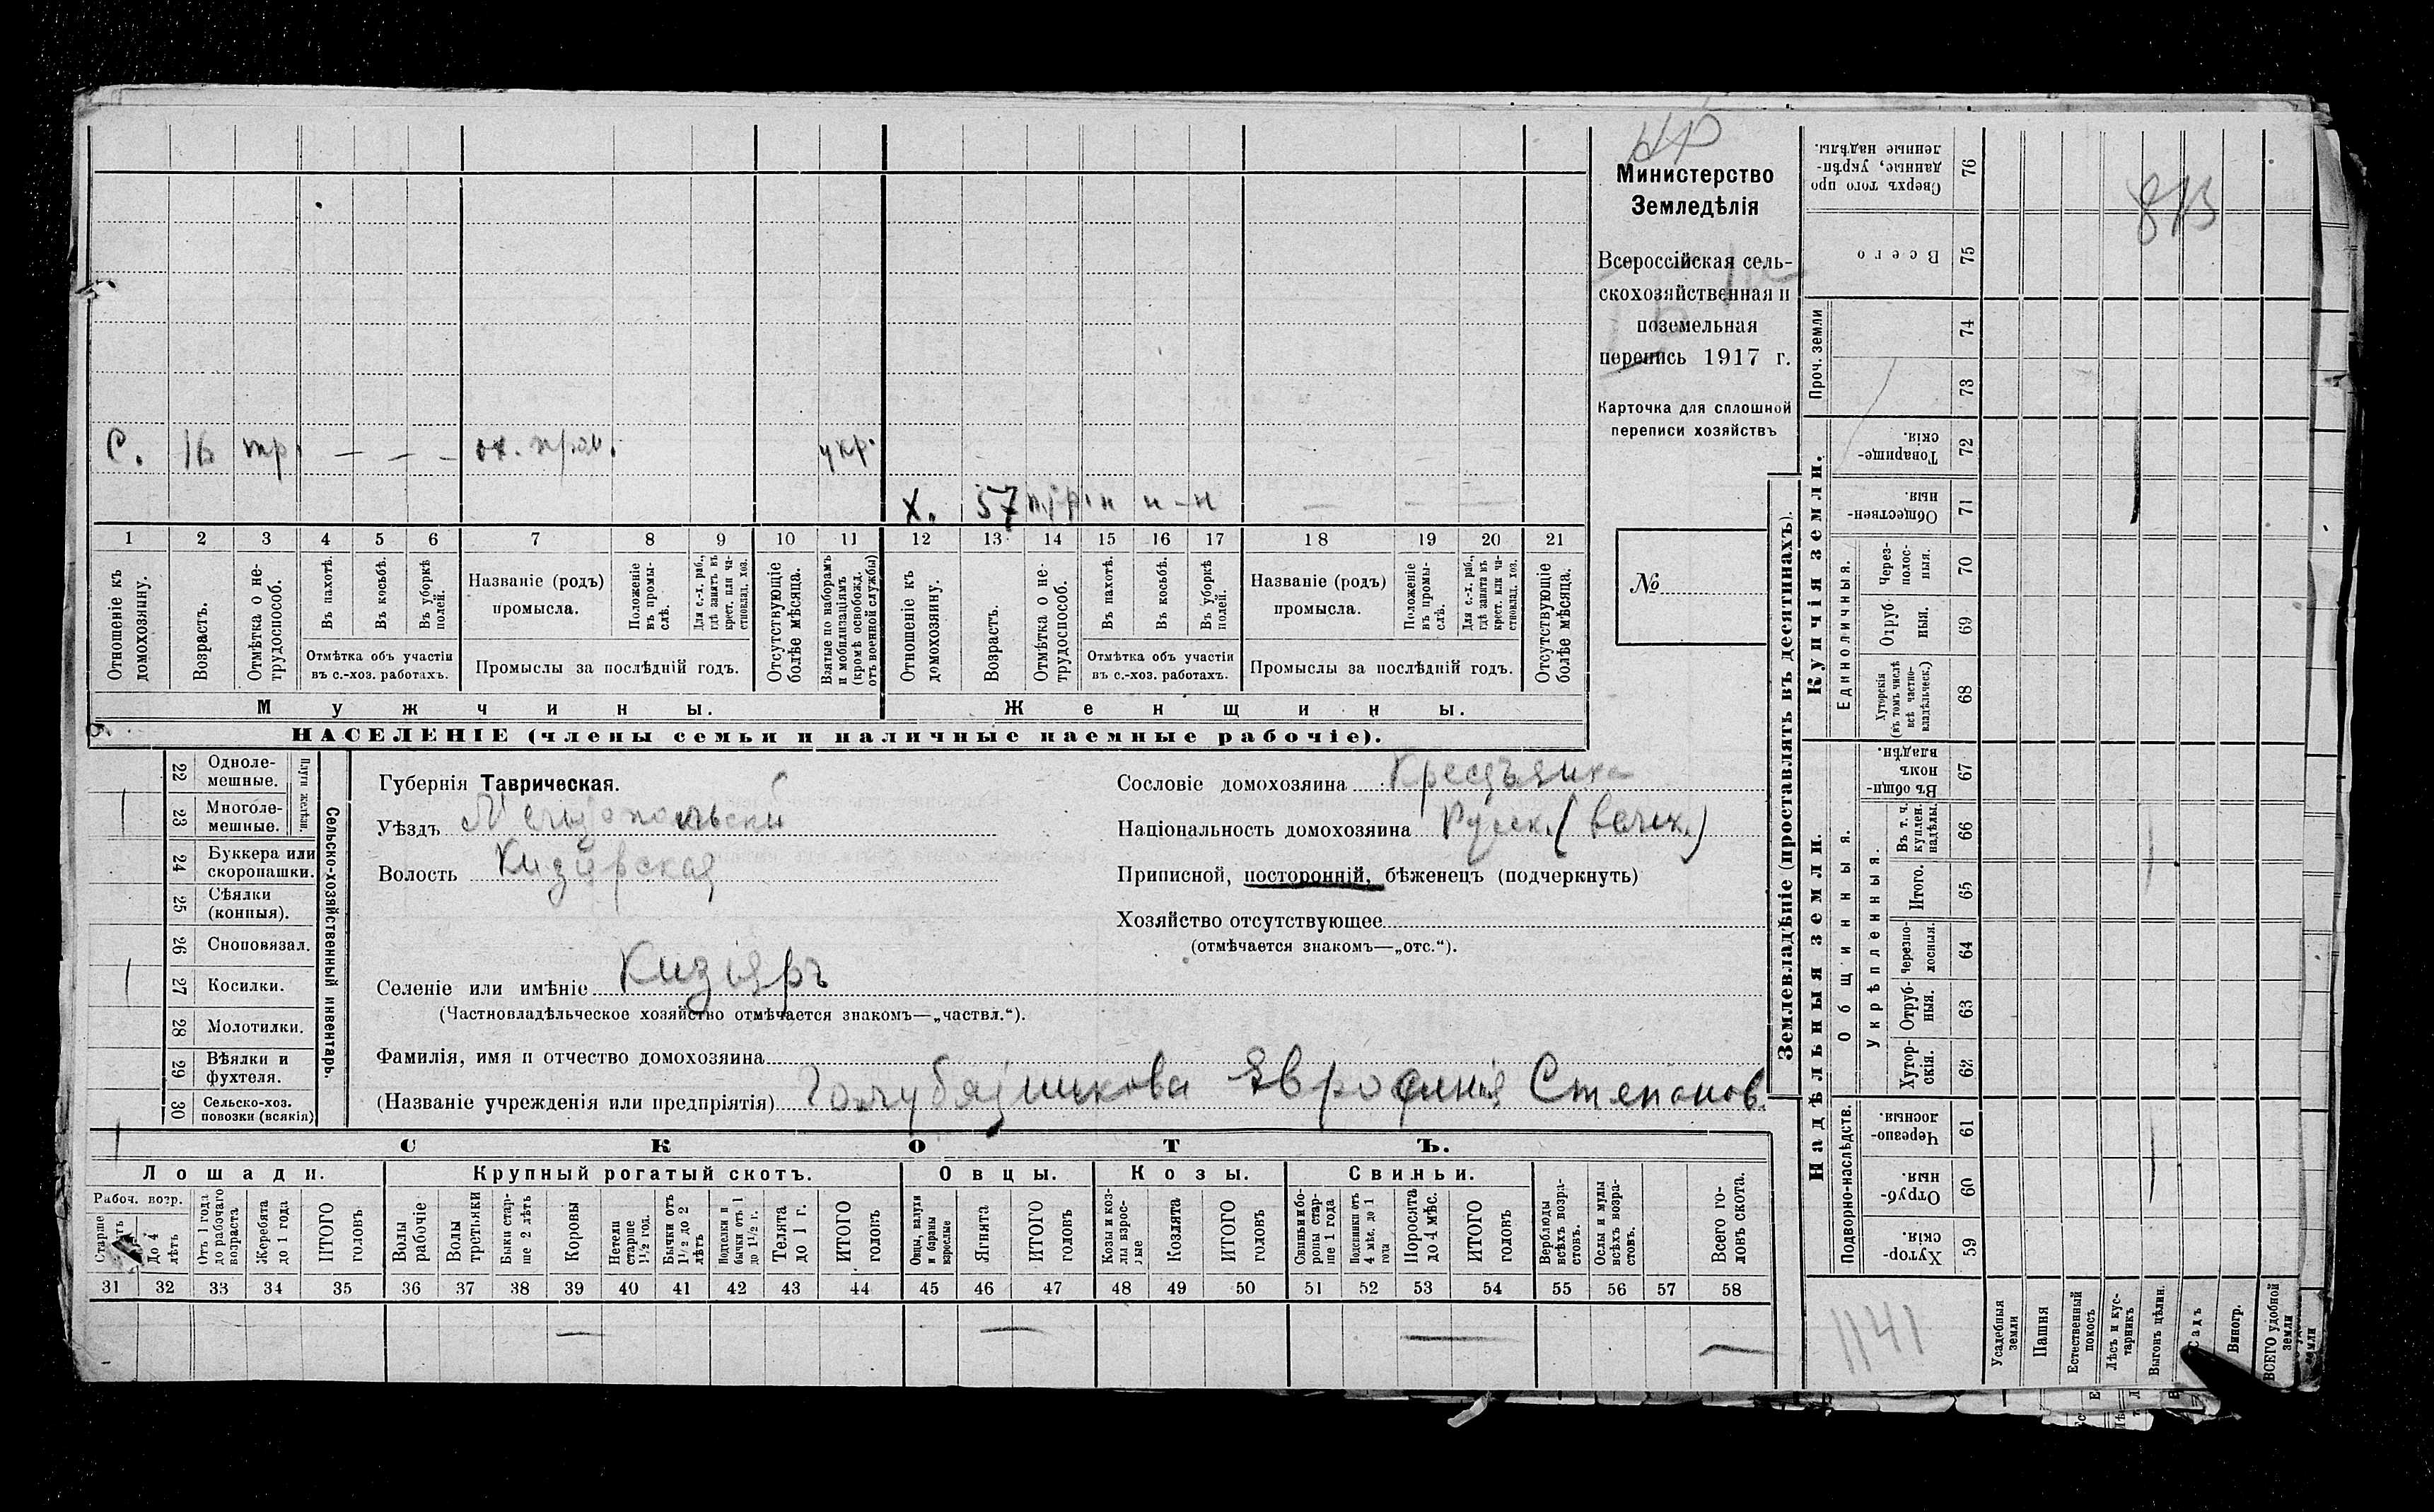 Министерство
Земледѣлія
Всероссійская сель-
скохозяйственная и
поземельная
перепись 1917 г.
Карточка для сплошной
переписи хозяйствъ
№
С. 16 тр. — — — укр.
Х. 57 — — —
1 2 3 4 5 6 7 8 9 10 11 12 13 14 15 16 17 18 19 20 21
Отношеніе къ домохозяину.
Возрастъ.
Отмѣтка о не-трудоспособ.
Въ пахотѣ.
Въ косьбѣ.
Въ уборкѣ полей.
Отмѣтка объ участіи
въ с.-хоз. работахъ.
Названіе (родъ)
промысла.
Положеніе въ промы-слѣ.
Для с.-х. раб., гдѣ занятъ въ крест. или ча-стновлад. хоз.
Промыслы за послѣдній годъ.
Отсутствующіе болѣе мѣсяца.
Взятые по наборамъ и мобилизаціямъ (кромѣ освобожд. отъ военной службы)
Отношеніе къ домохозяину.
Возрастъ.
Отмѣтка о не-трудоспособ.
Въ пахотѣ.
Въ косьбѣ.
Въ уборкѣ полей.
Отмѣтка объ участіи
въ с.-хоз. работахъ.
Названіе (родъ)
промысла.
Положеніе въ промы-слѣ.
Для с.-х. раб., гдѣ занята въ крест. или ча-стновлад. хоз.
Промыслы за послѣдній годъ.
Отсутствующіе болѣе мѣсяца.
Мужчины.
Женщины.
НАСЕЛЕНІЕ (члены семьи и наличные наемные рабочіе).
Сельско-хозяйственный инвентарь.
Плуги желѣзн.
22 Одноле-мешные.
23 Многоле-мешные.
24 Буккера или скоропашки.
25 Сѣялки (конныя).
26 Сноповязал.
27 Косилки.
28 Молотилки.
29 Вѣялки и фухтеля.
30 Сельско-хоз. повозки (всякія)
Губернія Таврическая.
Уѣздъ Мелитопольскій
Волость Кизіярская
Селеніе или имѣніе Кизіяръ
(Частновладѣльческое хозяйство отмѣчается знакомъ—„частвл.“).
Фамилія, имя и отчество домохозяина
(Названіе учрежденія или предпріятія) Голубятникова Евросинія Степанов.
Сословіе домохозяина Крестьянка
Національность домохозяина Русск. (велик.)
Приписной, посторонній, бѣженецъ (подчеркнуть)
Хозяйство отсутствующее
(отмѣчается знакомъ—„отс.“).
СКОТЪ.
Лошади. Крупный рогатый скотъ. Овцы. Козы. Свиньи.
Рабоч. возр.
Старше лѣтъ
До 4 лѣтъ
Отъ 1 года до рабочаго возраста
Жеребята до 1 года
ИТОГО головъ
Волы рабочіе
Волы третьяки
Быки стар-ше 2 лѣтъ
Коровы
Нетели старше 1½ год.
Бычки отъ 1½ до 2 лѣтъ
бычки отъ 1 до 1½ г.
Телята до 1 г.
ИТОГО головъ
Овцы, валухи и бараны взрослые
Ягнята
ИТОГО головъ
Козы и коз-лы взрос-лые
Козлята
ИТОГО головъ
Свиньи и бо-ровы стар-ше 1 года
Подсвинки отъ 4 мѣс. до 1 года
Поросята до 4 мѣс.
ИТОГО головъ
Верблюды всѣхъ возра-стовъ.
Ослы и мулы всѣхъ возра-стовъ.
Всего го-ловъ скота.
31 32 33 34 35 36 37 38 39 40 41 42 43 44 45 46 47 48 49 50 51 52 53 54 55 56 57 58
— — — —
Землевладѣніе (проставлять въ десятинахъ).
Купчія земли.
Надѣльныя земли.
Сверхъ того про-данные, укрѣп-ленные надѣлы. 76
Всего 75
Проч. земли
74
73
Товарище-скія. 72
Обществен-ныя. 71
Единоличныя.
Через-полос-ныя. 70
Отруб-ныя. 69
Хуторскія (въ томъ числѣ всѣ частно-владѣльческ.) 68
Общинныя.
Въ общи-номъ владѣн. 67
Укрѣпленныя.
Въ т. ч. куплен. надѣлы. 66
Итого. 65
Черезпо-лосныя. 64
Отруб-ныя. 63
Хутор-скія. 62
Подворно-наслѣдств.
Черезпо-лосныя. 61
Отруб-ныя. 60
Хутор-скія. 59
1141
Усадебныя земли
Пашня
Естественный покосъ
Лѣсъ и кус-тарникъ
Выгонъ цѣлин.
Садъ
Виногр.
ВСЕГО удобной земли